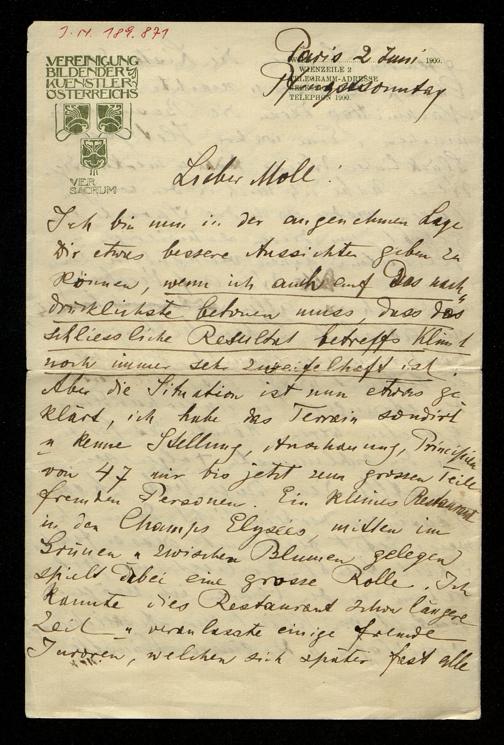 J. N. 189.871
VEREINIGUNG
BILDENDER
KUENSTLER
ÖSTERREICHS
VER
SACRUM
Paris 2 Juni 1900.
WIENZEILE 2
TELEGRAMM-ADRESSE
Pfingstsonntag
TELEPHON 1900.
Lieber Moll!
Ich bin nun in der angenehmen Lage
Dir etwas bessere Aussichten geben zu
können, wenn ich auch auf Das nach-
drücklichste betonen muss, dass das
schliessliche Resultat betreffs Klimt
noch immer sehr zweifelhaft ist.
Aber die Situation ist nun etwas ge-
klärt, ich habe das Terrain sondirt
u kenne Stellung, Anschauung, Principien
von 47 mir bis jetzt zum grossen Teile
fremden Personen. Ein kleines Restaurant
in den Champs Elysées, mitten im
Grünen u zwischen Blumen gelegen
spielt dabei eine grosse Rolle. Ich
kannte dies Restaurant schon längere
Zeit u veranlasste einige fremde
Juroren, welchen sich später fast alle